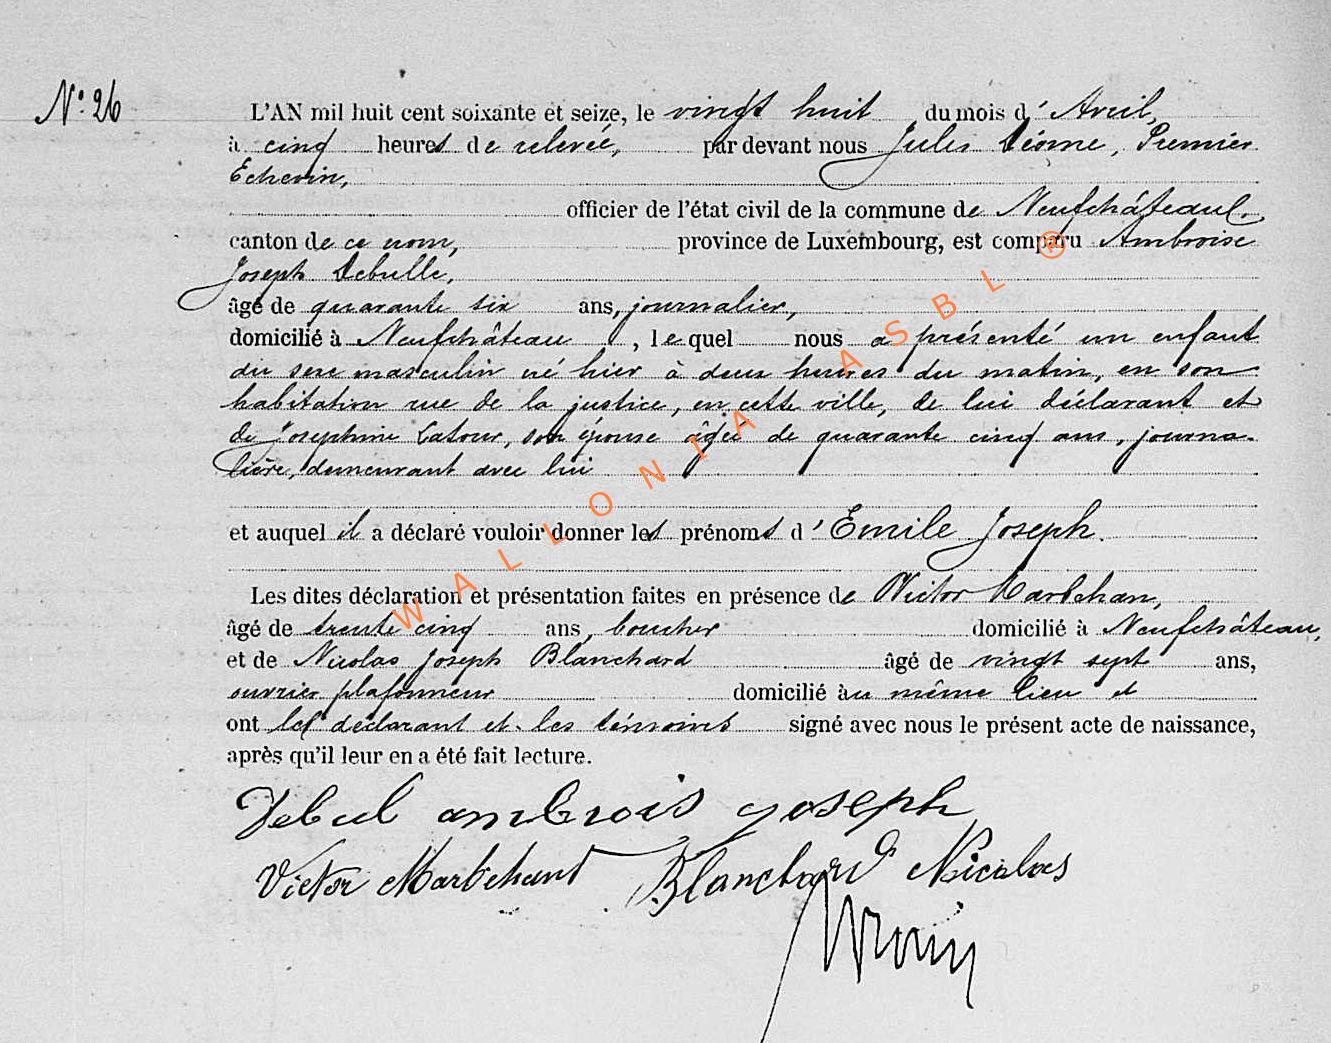 N° 26
L'AN mil huit cent soixante et seize, le vingt huit du mois d' Avril,
à cinq heures de relevée, par devant nous Jules Déome, Premier
Echevin,
officier de l'état civil de la commune de Neufchâteau,
canton de ce nom, province de Luxembourg, est comparu Ambroise
Joseph Debulle,
âgé de quarante six ans, journalier,
domicilié à Neufchâteau, lequel nous a présenté un enfant
du sexe masculin né hier à deux heures du matin, en son
habitation rue de la justice, en cette ville, de lui déclarant et
de Josephine Latour, son épouse âgée de quarante cinq ans, journa-
lière, demeurant avec lui
et auquel il a déclaré vouloir donner les prénoms d' Emile Joseph.
Les dites déclaration et présentation faites en présence de Victor Marbehan,
âgé de trente cinq ans, boucher domicilié à Neufchâteau,
et de Nicolas Joseph Blanchard âgé de vingt sept ans,
ouvrier plafonneur domicilié au même lieu et
ont le déclarant et les témoins signé avec nous le présent acte de naissance,
après qu'il leur en a été fait lecture.
Debul ambrois joseph
Victor Marbehant Blanchard Nicolas
WALLONIA ASBL ®